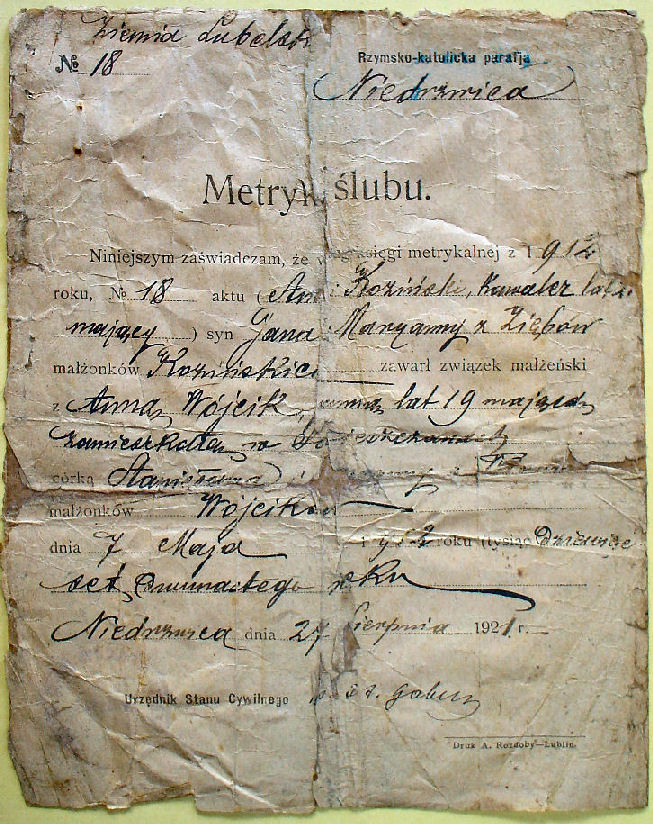 Ziemia Lubelsk
№ 18
Rzymsko-katolicka parafja
Niedrzwica
Metryk ślubu.
Niniejszym zaświadczam, że księgi metrykalnej z 1912
roku, № 18 aktu ( Koziński, Kawaler lat
mający ) syn Jana Marzanny z Ziębów
małżonków Kozińskich zawarł związek małżeński
z Anną Wójcik, panną lat 19 mającą
zamieszkałą w
córką Stanisława z
małżonków Wójcików
dnia 7 Maja 1912 roku (tysiąc Dziewięć
set Dwunastego roku
Niedrzwica dnia 27 Sierpnia 1921 r.
Urzędnik Stanu Cywilnego
Druk A. Rozdoby—Lublin.